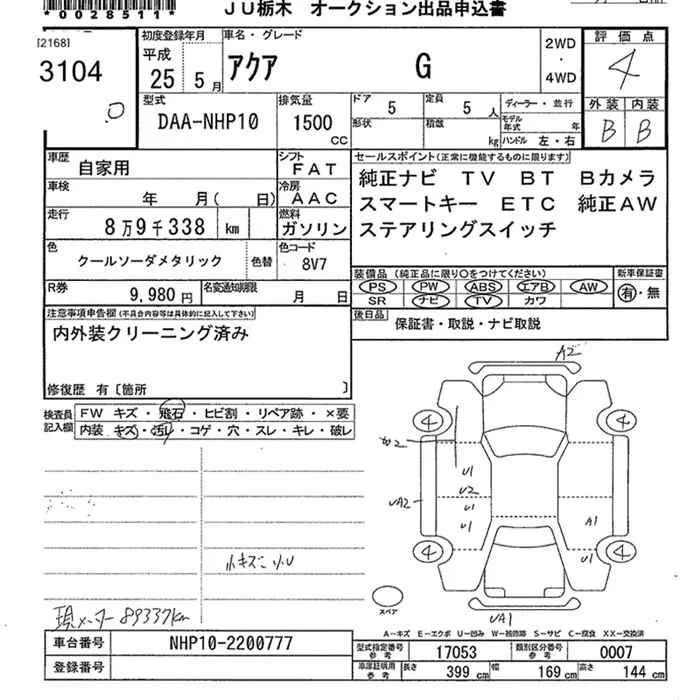 *0028511*
JU栃木 オークション出品申込書
[2168]
3104
初度登録年月
平成
25 5月
車名・グレード
アクア G
2WD
・
4WD
評価点
4
外装 内装
B B
型式
DAA-NHP10
排気量
1500
CC
ドア 5
定員 5 人
形状
積数 kg
ディーラー・並行
モデル年式 年
ハンドル 左・右
車歴
自家用
シフト
FAT
車検
年 月( 日)
冷房
AAC
走行
8万9千338 km
燃料
ガソリン
色
クールソーダメタリック
色替
色コード
8V7
R券
9,980円
名変通知期限
月 日
セールスポイント(正常に機能するものに限ります)
純正ナビ TV BT Bカメラ
スマートキー ETC 純正AW
ステアリングスイッチ
装備品(純正品に限り○をつけてください)
PS PW ABS エアB AW
SR ナビ TV カワ
新車保証書
有・無
後日品
保証書・取説・ナビ取説
注意事項申告欄(不具合内容等は具体的に記入して下さい)
内外装クリーニング済み
修復歴 有〔箇所 〕
検査員
記入欄
FW キズ・飛石・ヒビ割・リペア跡・×要
内装 キズ・汚れ・コゲ・穴・スレ・キレ・破レ
A2
4
4
U1
U2
U1
U1
UA2
A1
U1
4
4
小キズ 小U
スペア
UA1
現メーター 89337km
A-キズ E-エクボ U-凹み W-補修跡 S-サビ C-腐食 XX-交換済
車台番号
NHP10-2200777
登録番号
型式指定番号
参考
17053
類別区分番号
参考
0007
車庫証明用
参考
長さ 399 cm
幅 169 cm
高さ 144 cm